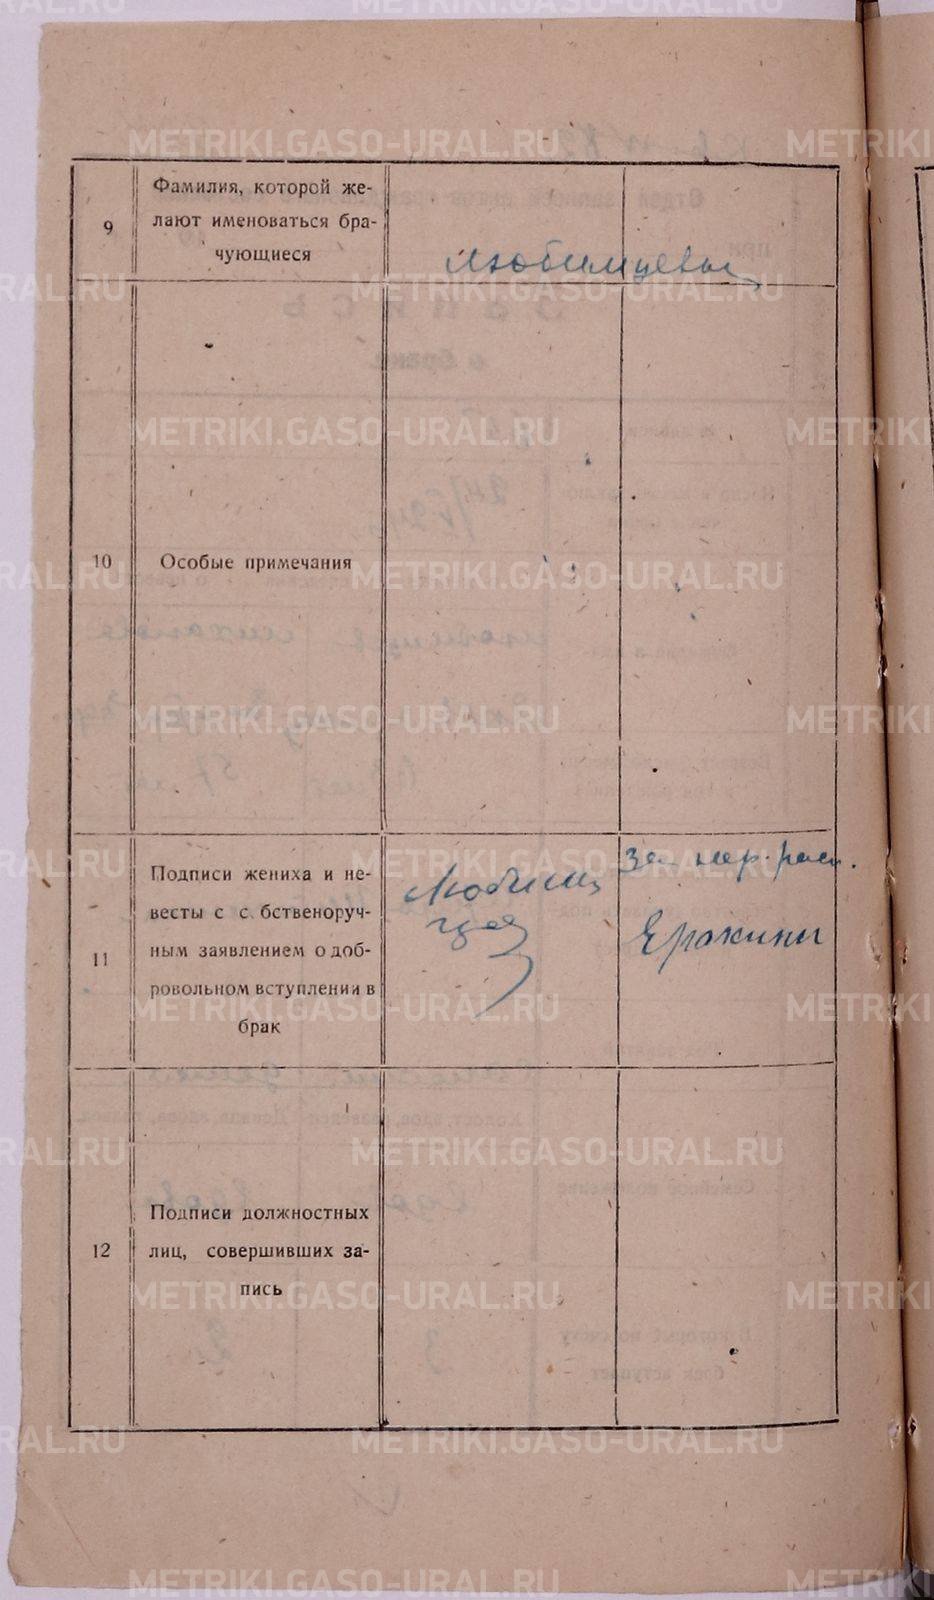 9
Фамилия, которой же-
лают именоваться бра-
чующиеся
Любимцевы
10
Особые примечания
11
Подписи жениха и не-
весты с с. бственоруч-
ным заявлением о доб-
ровольном вступлении в
брак
Любим
цев
За нер. рас.
Ерохины
12
Подписи должностных
лиц, совершивших за-
пись
METRIKI.GASO-URAL.RU